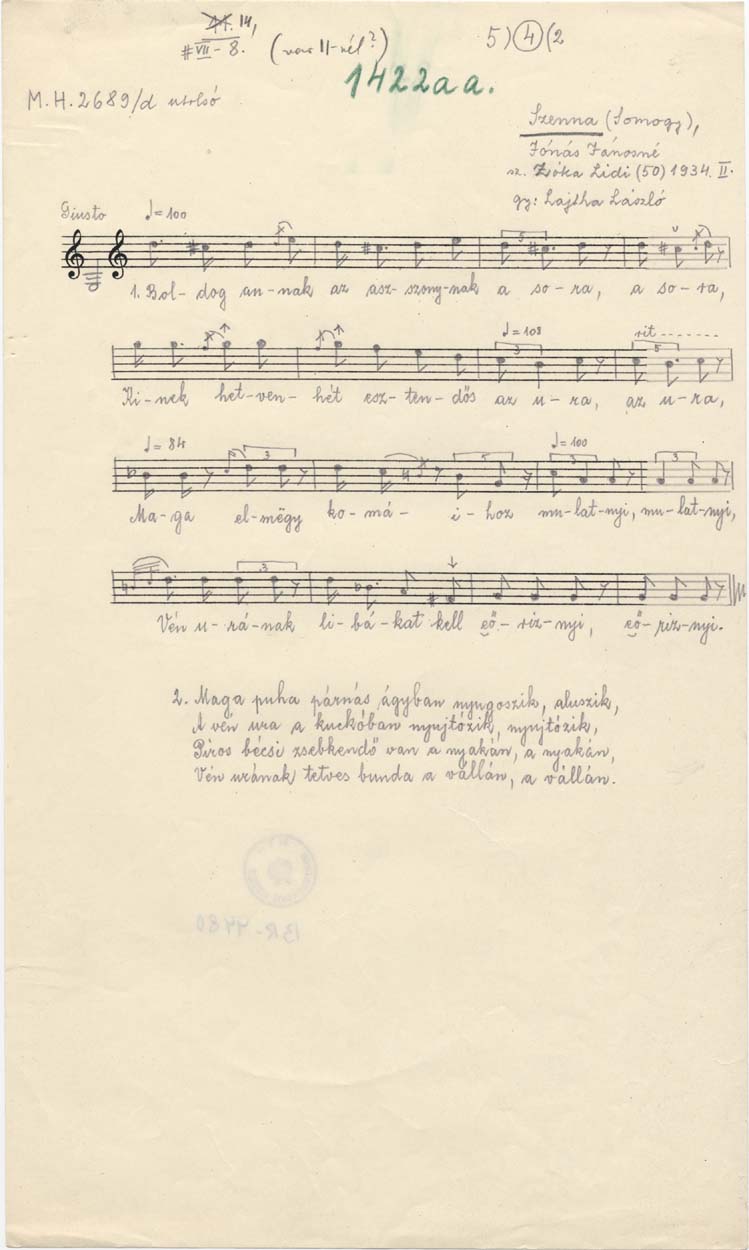 14,
#VII - 8. (var 11-nél?) 5) 4 (2
1422aa.
M.H. 2689/d utolsó
Szenna (Somogy),
Jónás Jánosné
sz. Zóka Lidi (50) 1934. II.
gy: Lajtha László
Giusto ♩=100
5
1. Bol-dog an-nak az asz-szony-nak a so-ra, a so-ra,
♩=108 rit.
3 5
Ki-nek het-ven-hét esz-ten-dős az u-ra, az u-ra,
♩=84 ♩=100
3 3 3
Ma-ga el-mëgy ko-má-i-hoz mu-lat-nyi, mu-lat-nyi,
3
Vén u-rá-nak li-bá-kat kell eő-riz-nyi, eő-riz-nyi.
2. Maga puha párnás ágyban nyugoszik, aluszik,
A vén ura a kuckóban nyujtózik, nyujtózik,
Piros bécsi zsebkendő van a nyakán, a nyakán,
Vén urának tetves bunda a vállán, a vállán.
BR-4480